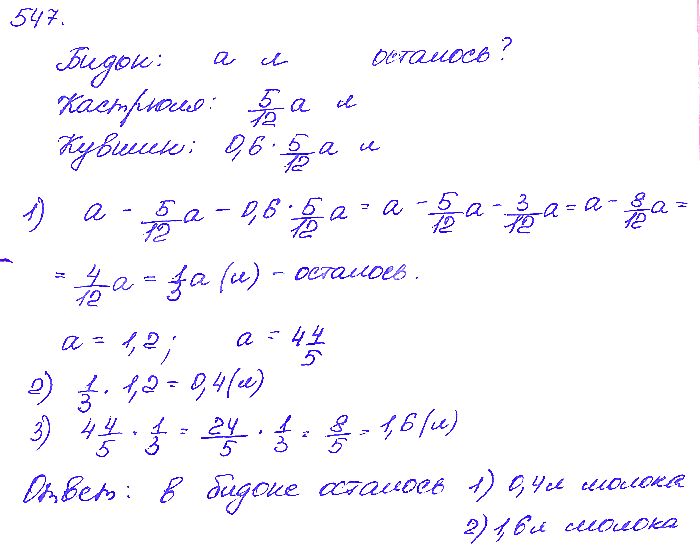 547.
Бидон: a л осталось?
Кастрюля: 5/12 a л
Кувшин: 0,6 · 5/12 a л
1) a - 5/12 a - 0,6 · 5/12 a = a - 5/12 a - 3/12 a = a - 8/12 a =
= 4/12 a = 1/3 a (л) - осталось.
a = 1,2; a = 4 4/5
2) 1/3 · 1,2 = 0,4 (л)
3) 4 4/5 · 1/3 = 24/5 · 1/3 = 8/5 = 1,6 (л)
Ответ: в бидоне осталось 1) 0,4л молока
2) 1,6 л молока